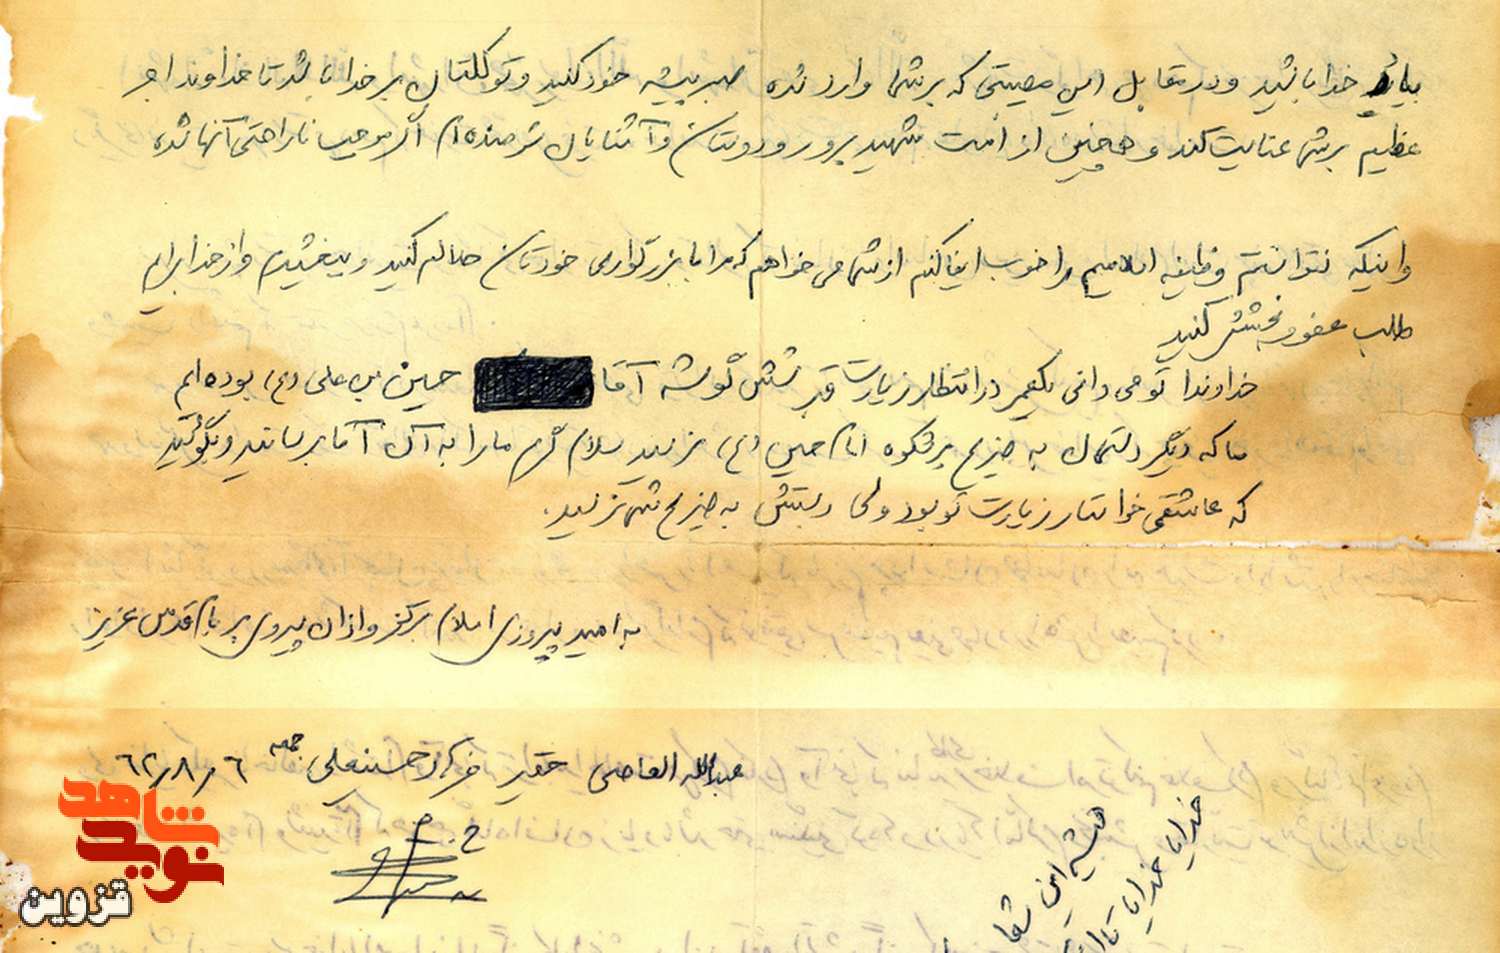 بیاد خدا باشید و در مقابل این مصیبتی که بر شما وارد شده صبر پیشه خود کنید و توکلتان بر خدا باشد تا خداوند اجر
عظیم بر شما عنایت کند و همچنین از امت شهید پرور و دوستان و آشنایان شرمنده ام اگر موجب ناراحتی آنها شده
و اینکه نتوانستم وظیفه اسلامیم را خوب ایفا کنم از شما می خواهم که مرا با بزرگواری خودتان حلالم کنید و ببخشیدم و از خدا برایم
طلب عفو و بخشش کنید
خداوندا تو می دانی یکعمر در انتظار زیارت قبر شش گوشه آقا حسین بن علی (ع) بوده ام
ما که دیگر دستمان به ضریح پرشکوه امام حسین (ع) نرسید سلام گرم ما را به آن آقا برسانید و بگوئید
که عاشقی خواستار زیارت تو بود ولی دستش به ضریح شما نرسید.
به امید پیروزی اسلام بزرگ و اذان پیروزی بر بام قدس عزیز
عبدالله العاصی حقیر فرکار حسینعلی جمعه ۶۲/۸/۶
همیشه این شعار
خدایا خدایا تا
شاهد
نوید
قزوین